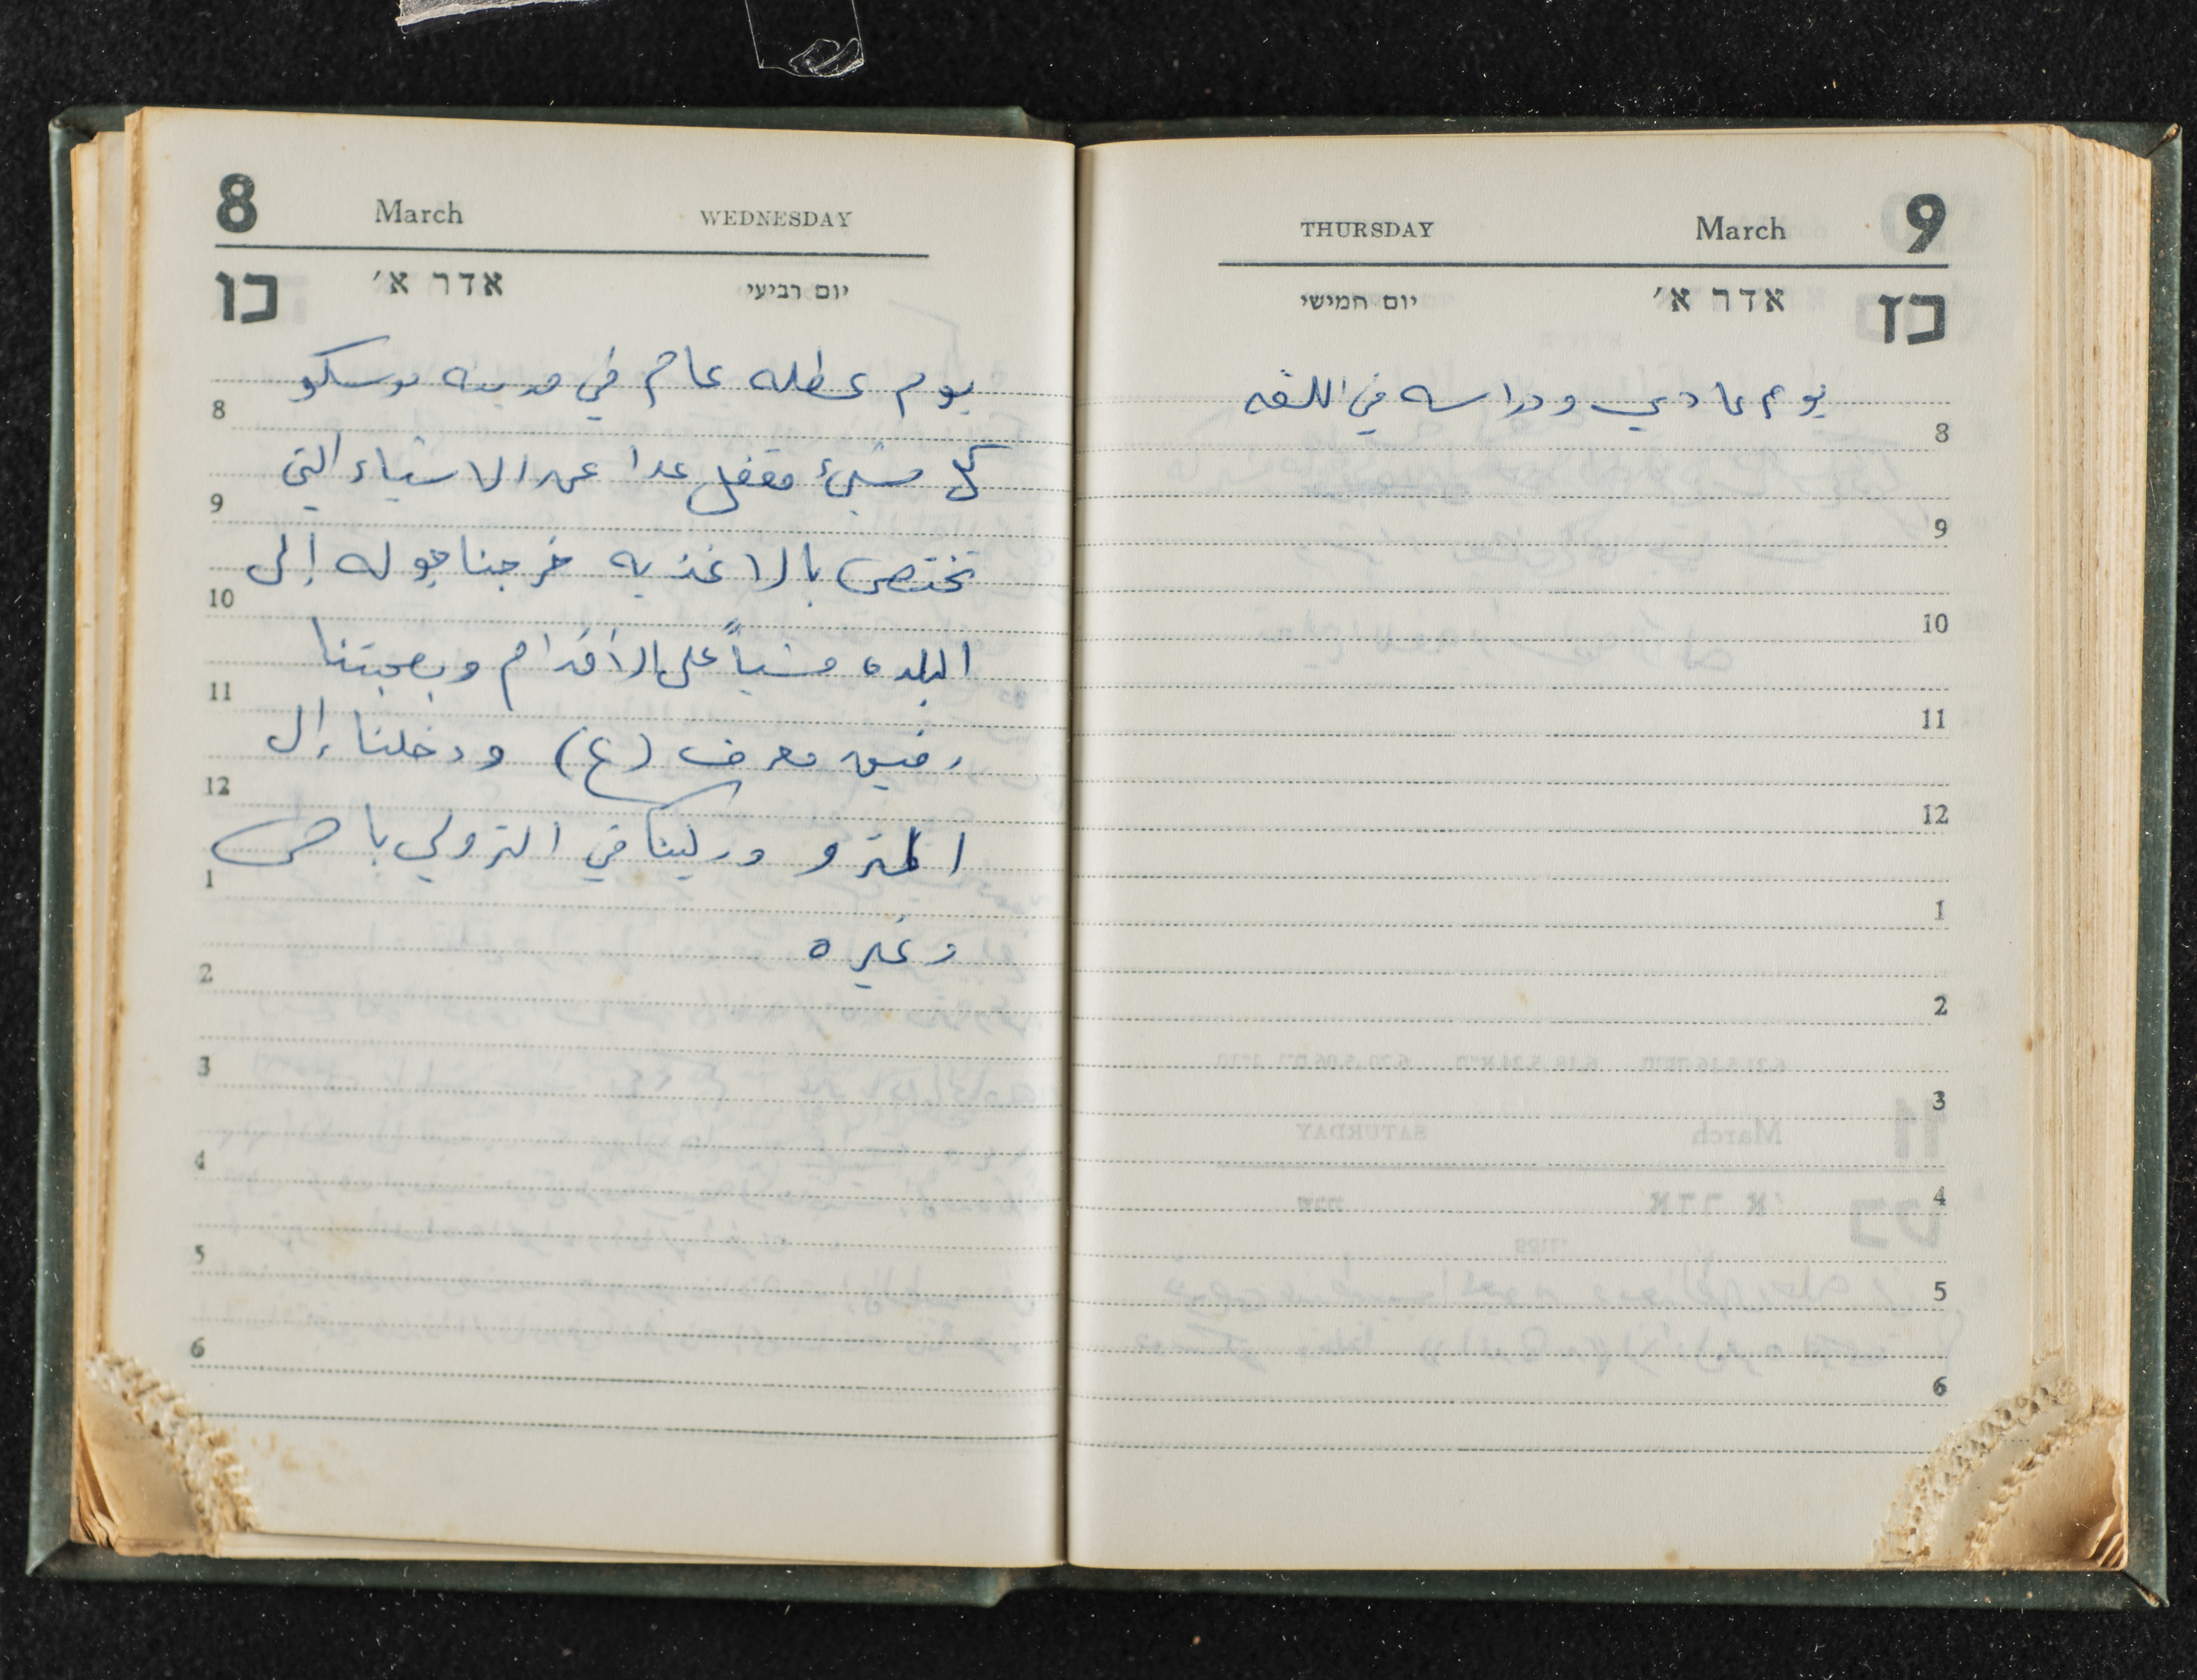 8 March WEDNESDAY
כו אדר א׳ יום רביעי
يوم عطله عام في مدينه موسكو
8
كل شيئ مقفل عدا عن الاشياء التي
9
تختص بالاغذيه خرجنا جوله إلى
10
البلده مشياً على الأقدام وبصحبتنا
11
رفيق معرف (ع) ودخلنا إلى
12
المترو وركبنا في الترولي باص
1
وغيره
2
3
4
5
6
THURSDAY March 9
כז אדר א׳ יום חמישי
يوم عادي ودراسه في اللغه
8
9
10
11
12
1
2
3
4
5
6